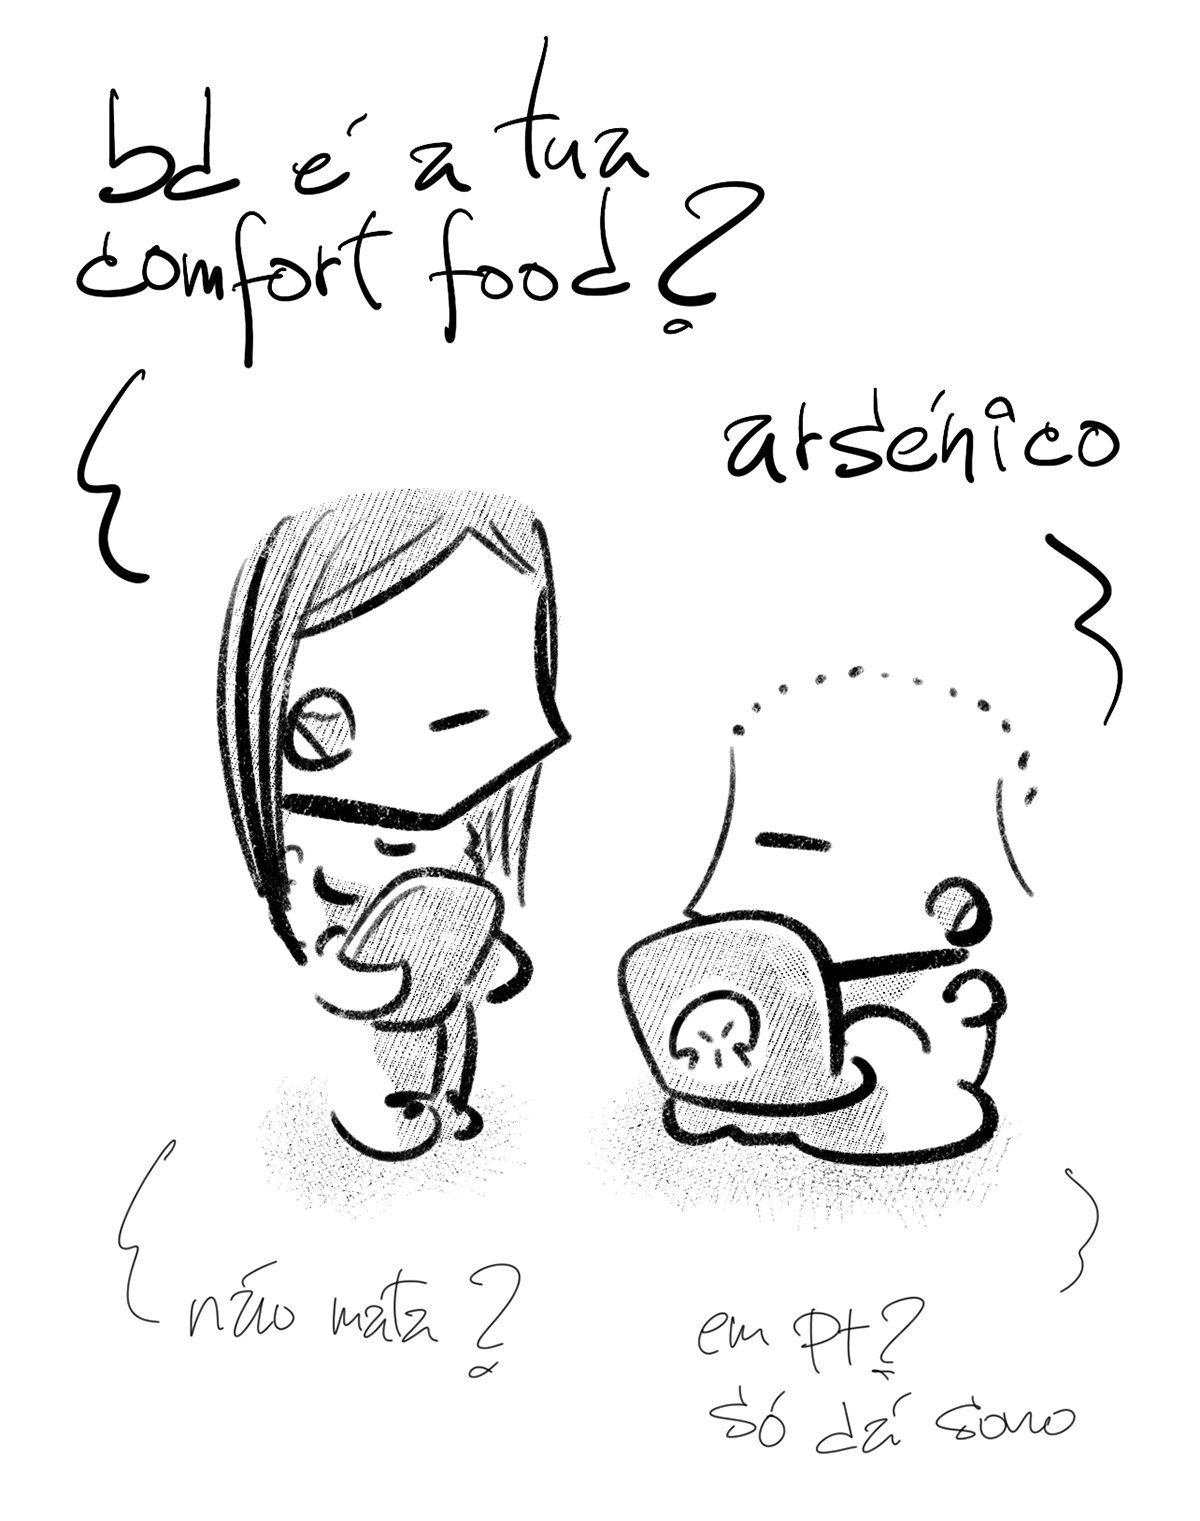 bd é a tua
comfort food?
arsénico
não mata?
em pt?
só dá sono